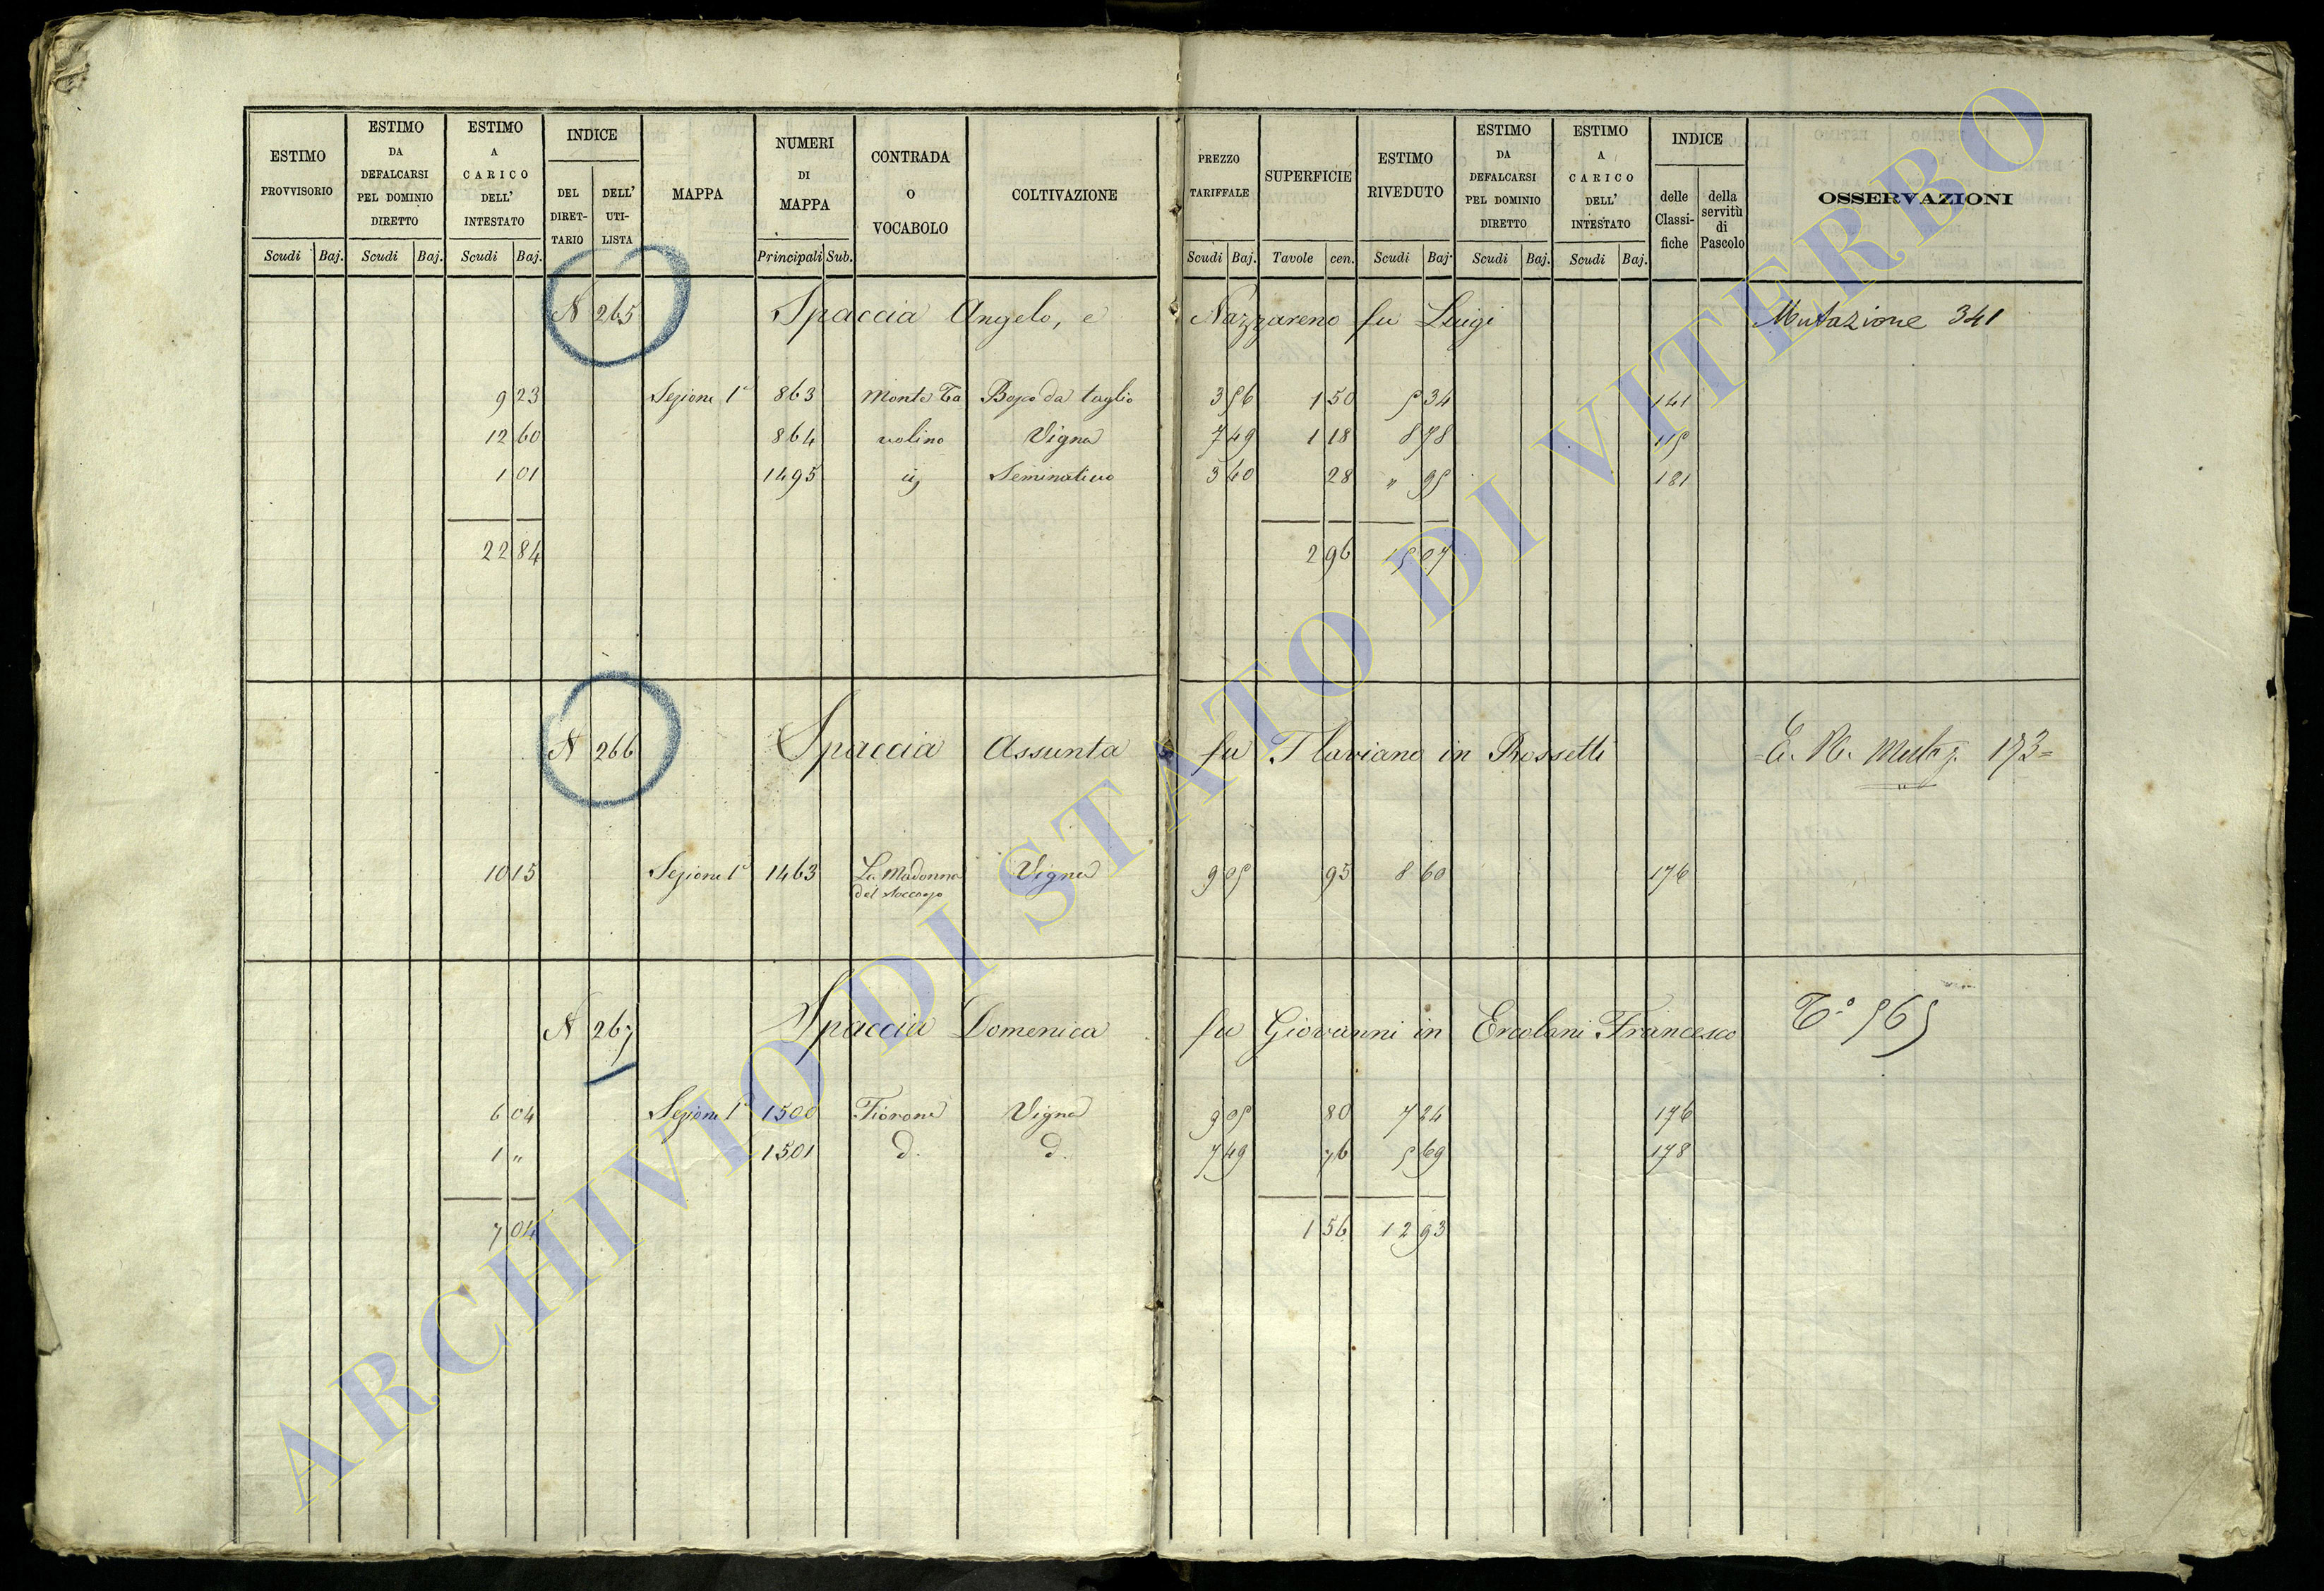 ESTIMO PROVVISORIO
ESTIMO DA DEFALCARSI PEL DOMINIO DIRETTO
ESTIMO A CARICO DELL' INTESTATO
INDICE
DEL DIRET-TARIO
DELL' UTI-LISTA
MAPPA
NUMERI DI MAPPA
CONTRADA O VOCABOLO
COLTIVAZIONE
PREZZO TARIFFALE
SUPERFICIE
ESTIMO RIVEDUTO
ESTIMO DA DEFALCARSI PEL DOMINIO DIRETTO
ESTIMO A CARICO DELL' INTESTATO
INDICE
delle Classi-fiche
della servitù di Pascolo
OSSERVAZIONI
Scudi Baj. Scudi Baj. Scudi Baj. Principali Sub. Scudi Baj. Tavole cen. Scudi Baj. Scudi Baj. Scudi Baj.
N 265 Spaccia Angelo, e Nazzareno fu Luigi Mutazione 341
9 23 Sezione 1ª 863 Monte Ta Bosco da taglio 3 56 1 50 5 34 141
12 60 864 volino Vigna 7 49 1 18 8 78 115
1 01 1495 Seminativo 3 40 28 " 95 181
22 84 2 96 15 07
N 266 Spaccia Assunta fu Flaviano in Rossetti Mutaz. 173
10 15 Sezione 1ª 1463 La Madonna Vigna 9 05 95 8 60 176
del
N 267 Spaccia Domenica fu Giovanni in Ercolani Francesco Tº 565
6 04 Sezione 1ª 1500 Fiorone Vigna 9 05 80 7 24 176
1 " 1501 d. d. 7 49 76 5 69 178
7 04 1 56 12 93
ARCHIVIO DI STATO DI VITERBO